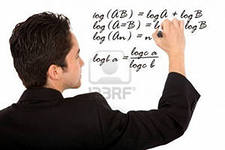 log (AB) = logA + logB
log (A=B) = logA logB
log (An) = n
logb a = logc a
logc b
123RF